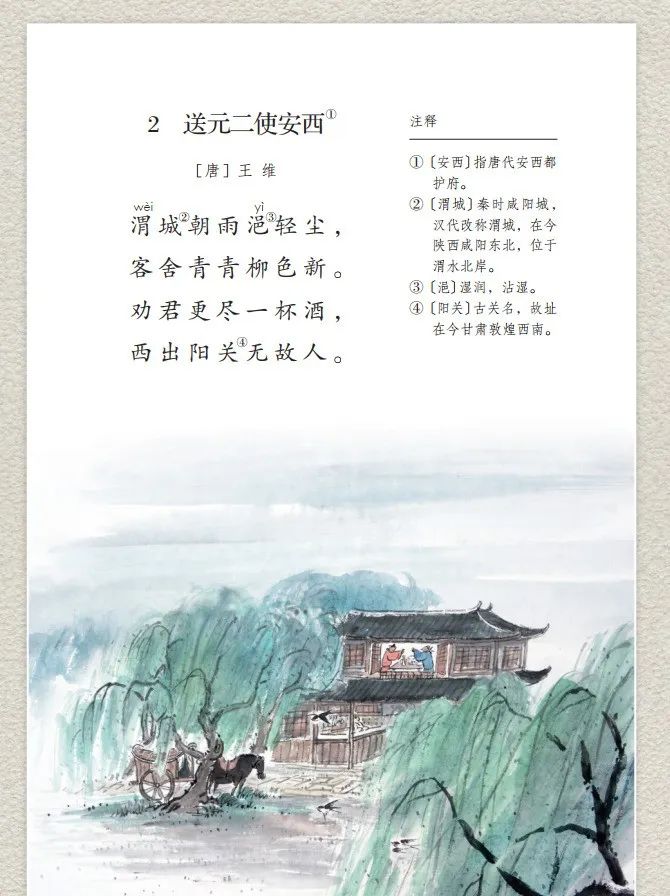 2 送元二使安西①
[唐] 王 维
wèi yì
渭城②朝雨浥③轻尘，
客舍青青柳色新。
劝君更尽一杯酒，
西出阳关④无故人。
注释
①〔安西〕指唐代安西都
护府。
②〔渭城〕秦时咸阳城，
汉代改称渭城，在今
陕西咸阳东北，位于
渭水北岸。
③〔浥〕湿润，沾湿。
④〔阳关〕古关名，故址
在今甘肃敦煌西南。